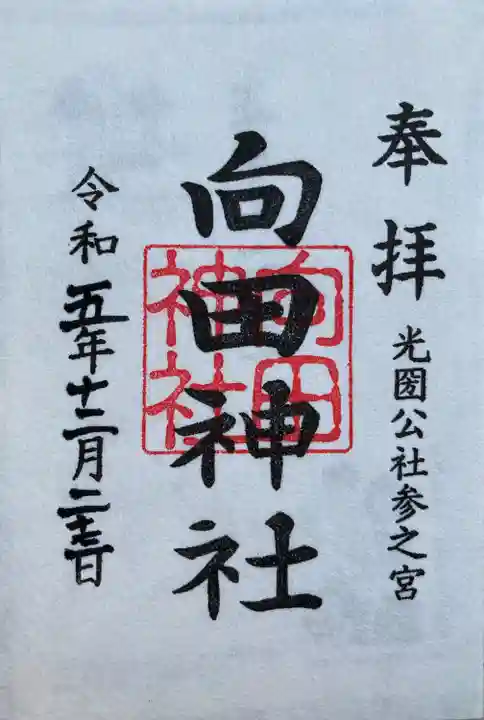 奉拝
光圀公社参之宮
向田神社
向田神社
令和五年十二月二十七日